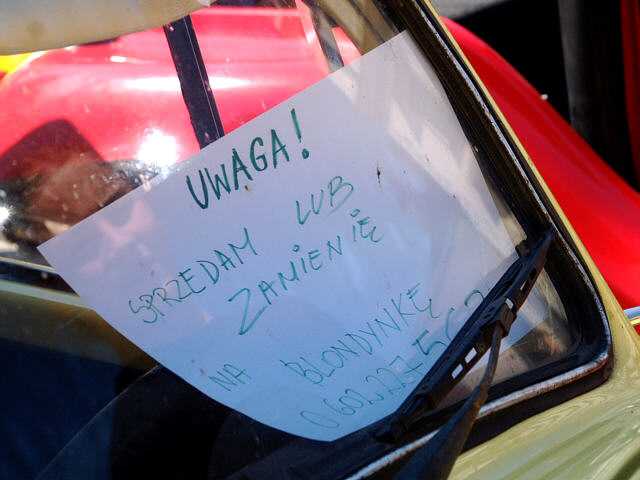 UWAGA!
SPRZEDAM LUB
ZAMIENIĘ
NA BLONDYNKĘ
0602227562